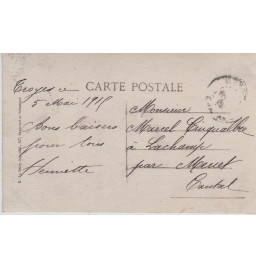 CARTE POSTALE
Troyes le
5 Mai 1915
Bons baisers
pour tous
Henriette
Monsieur
Marcel
à Lachamp
par
Cantal